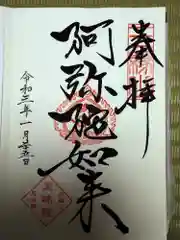 奉拝
阿弥陀如来
令和三年一月廿五日